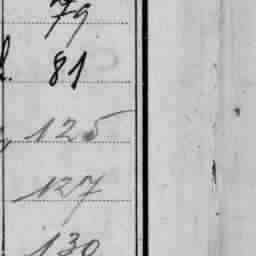 79
81
125
127
130